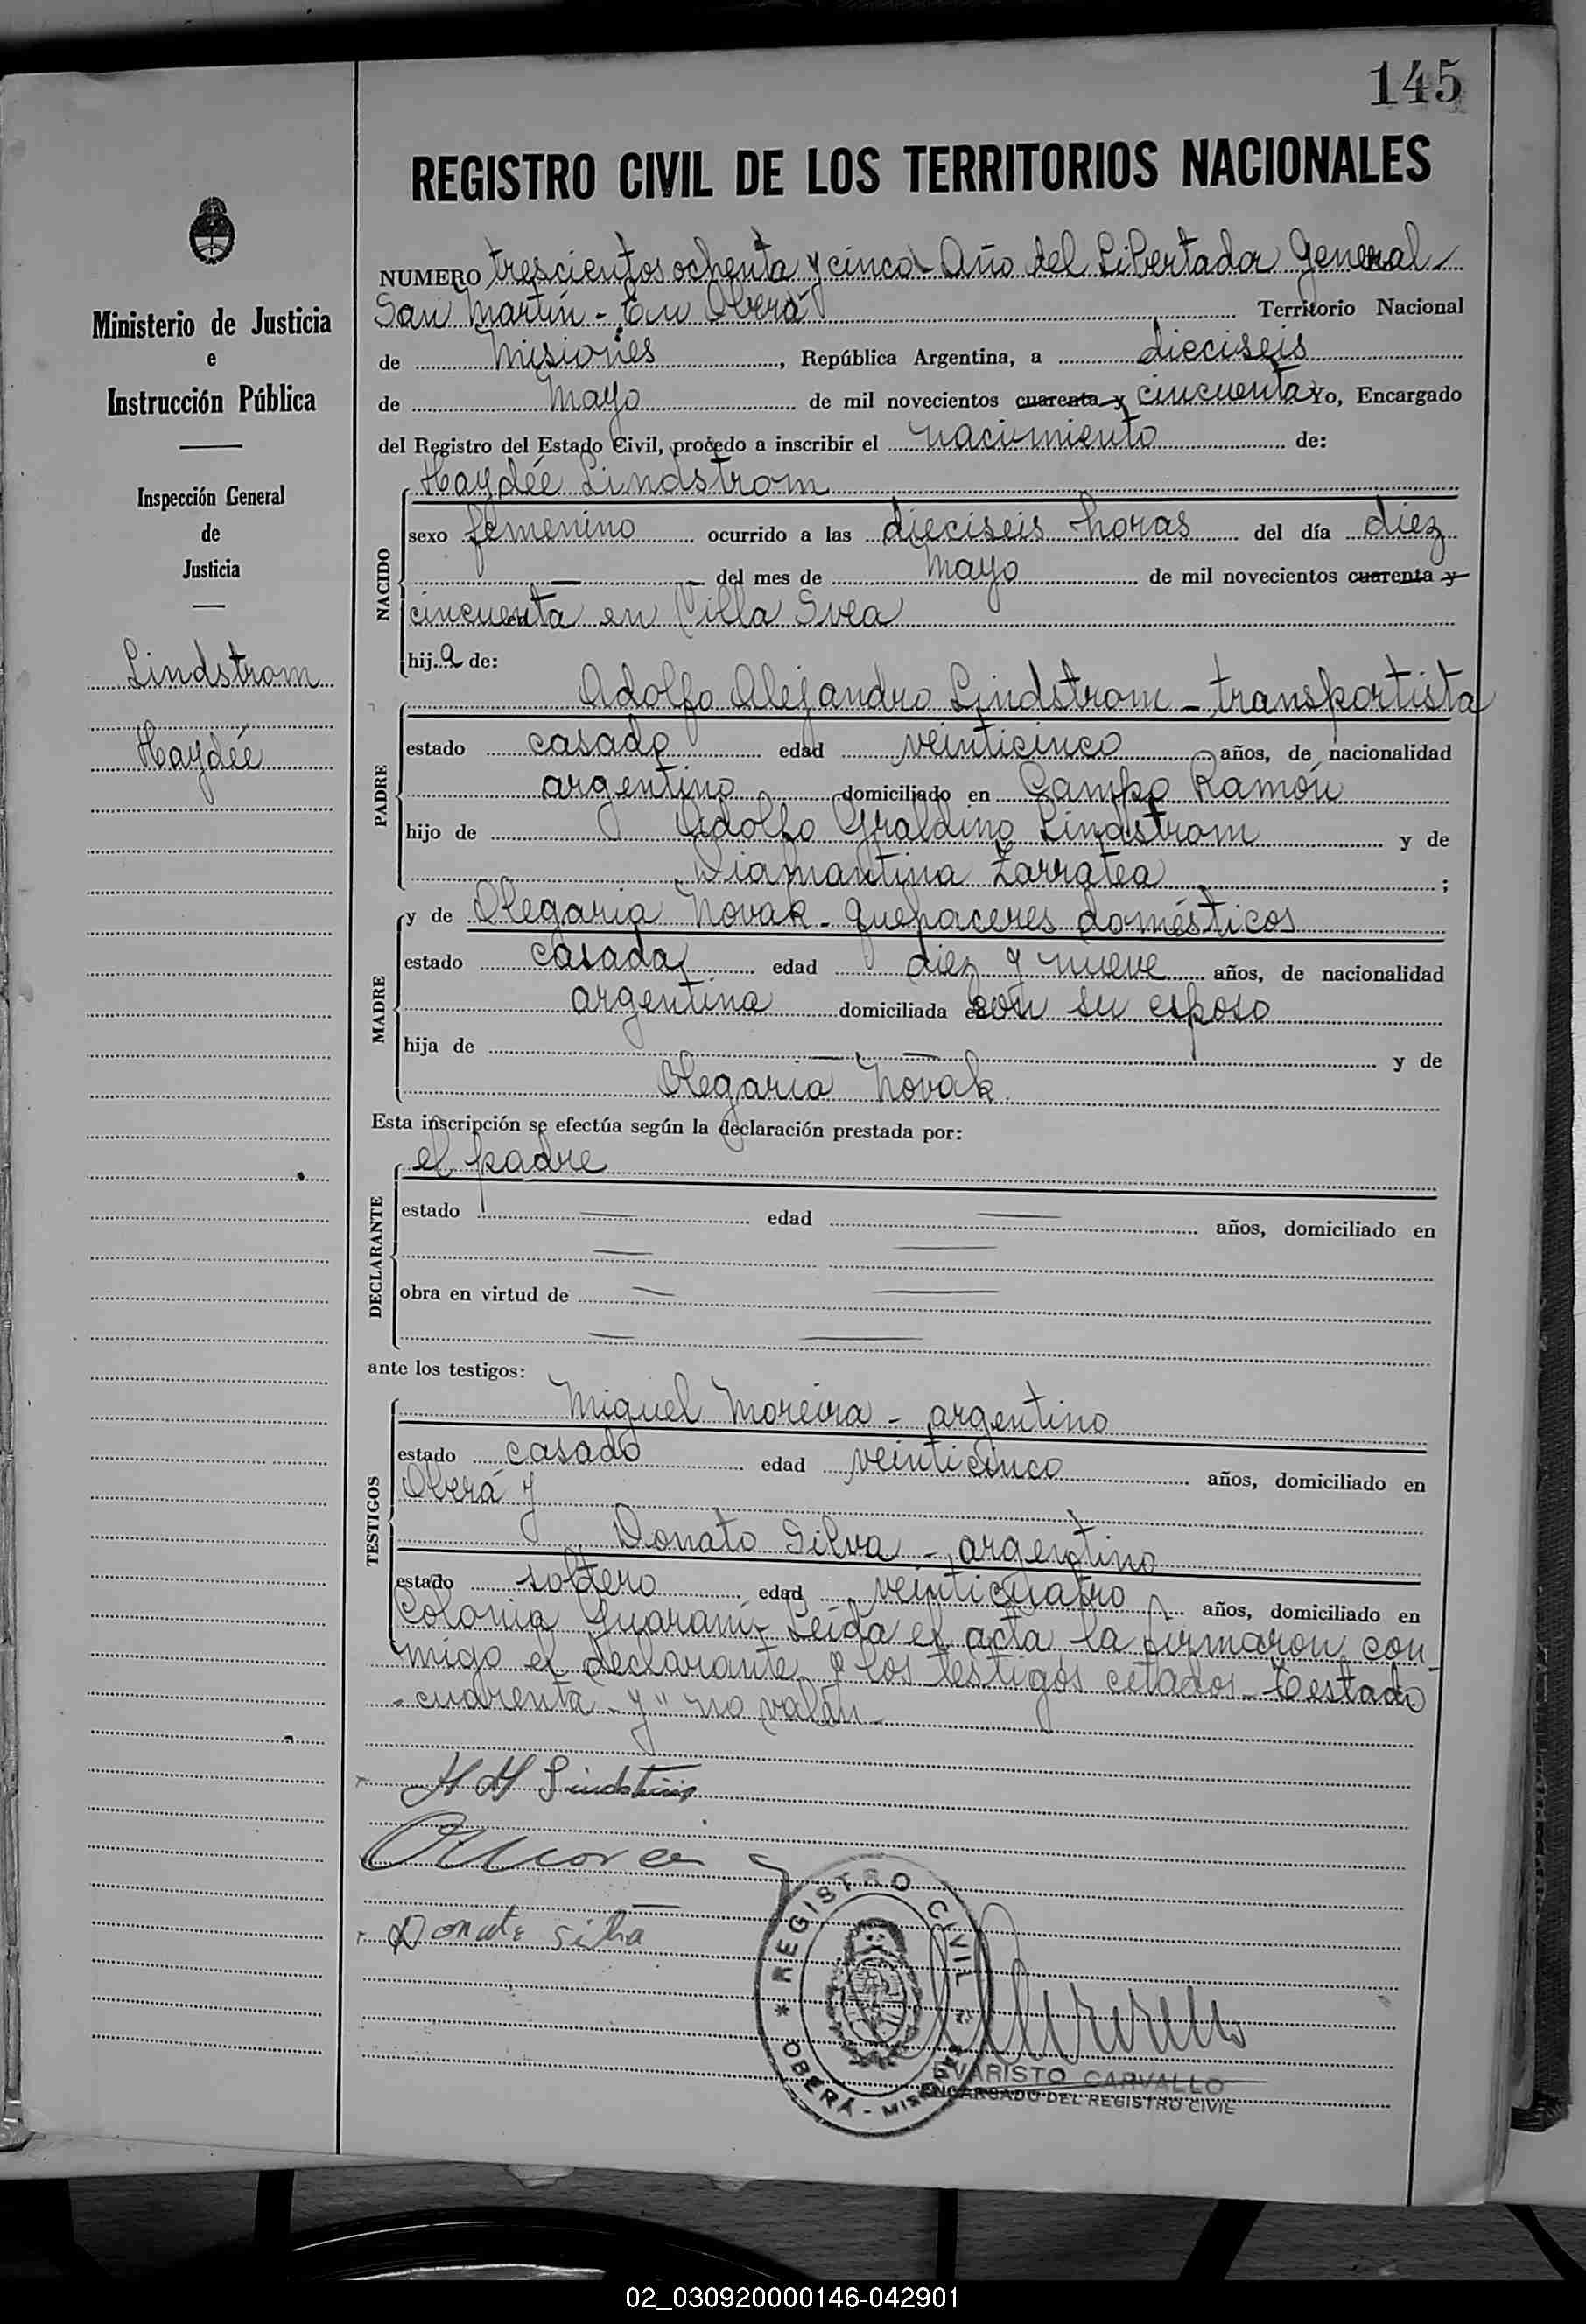 145
REGISTRO CIVIL DE LOS TERRITORIOS NACIONALES
Ministerio de Justicia
e
Instrucción Pública
Inspección General
de
Justicia
Lindstrom
Haydée
NUMERO trescientos ochenta y cinco - Año del Libertador General
San Martín - En Oberá Territorio Nacional
de Misiones, República Argentina, a dieciseis
de Mayo de mil novecientos cuarenta y cincuenta Yo, Encargado
del Registro del Estado Civil, procedo a inscribir el nacimiento de:
NACIDO
Haydée Lindstrom
sexo femenino ocurrido a las dieciseis horas del día diez
del mes de Mayo de mil novecientos cuarenta y
cincuenta en Villa Svea
hija de:
PADRE
Adolfo Alejandro Lindstrom - transportista
estado casado edad veinticinco años, de nacionalidad
argentino domiciliado en Campo Ramón
hijo de Adolfo Lindstrom y de
Diamantina Zarratea ;
MADRE
y de Olegaria Novak - quehaceres domésticos
estado casada edad diez y nueve años, de nacionalidad
argentina domiciliada con su esposo
hija de — — y de
Olegaria Novak
Esta inscripción se efectúa según la declaración prestada por:
DECLARANTE
el padre
estado — edad — años, domiciliado en
— —
obra en virtud de — —
— —
ante los testigos:
TESTIGOS
Miguel Moreira - argentino
estado casado edad veinticinco años, domiciliado en
Oberá y
Donato Silva - argentino
estado soltero edad veinticuatro años, domiciliado en
Colonia Guaraní - Leída el acta la firmaron con
migo el declarante y los testigos citados - Testado
"cuarenta - y" no valen -
Donato Silva
* REGISTRO CIVIL *
OBERÁ - MISIONES
EVARISTO CARVALLO
ENCARGADO DEL REGISTRO CIVIL
02_030920000146-042901